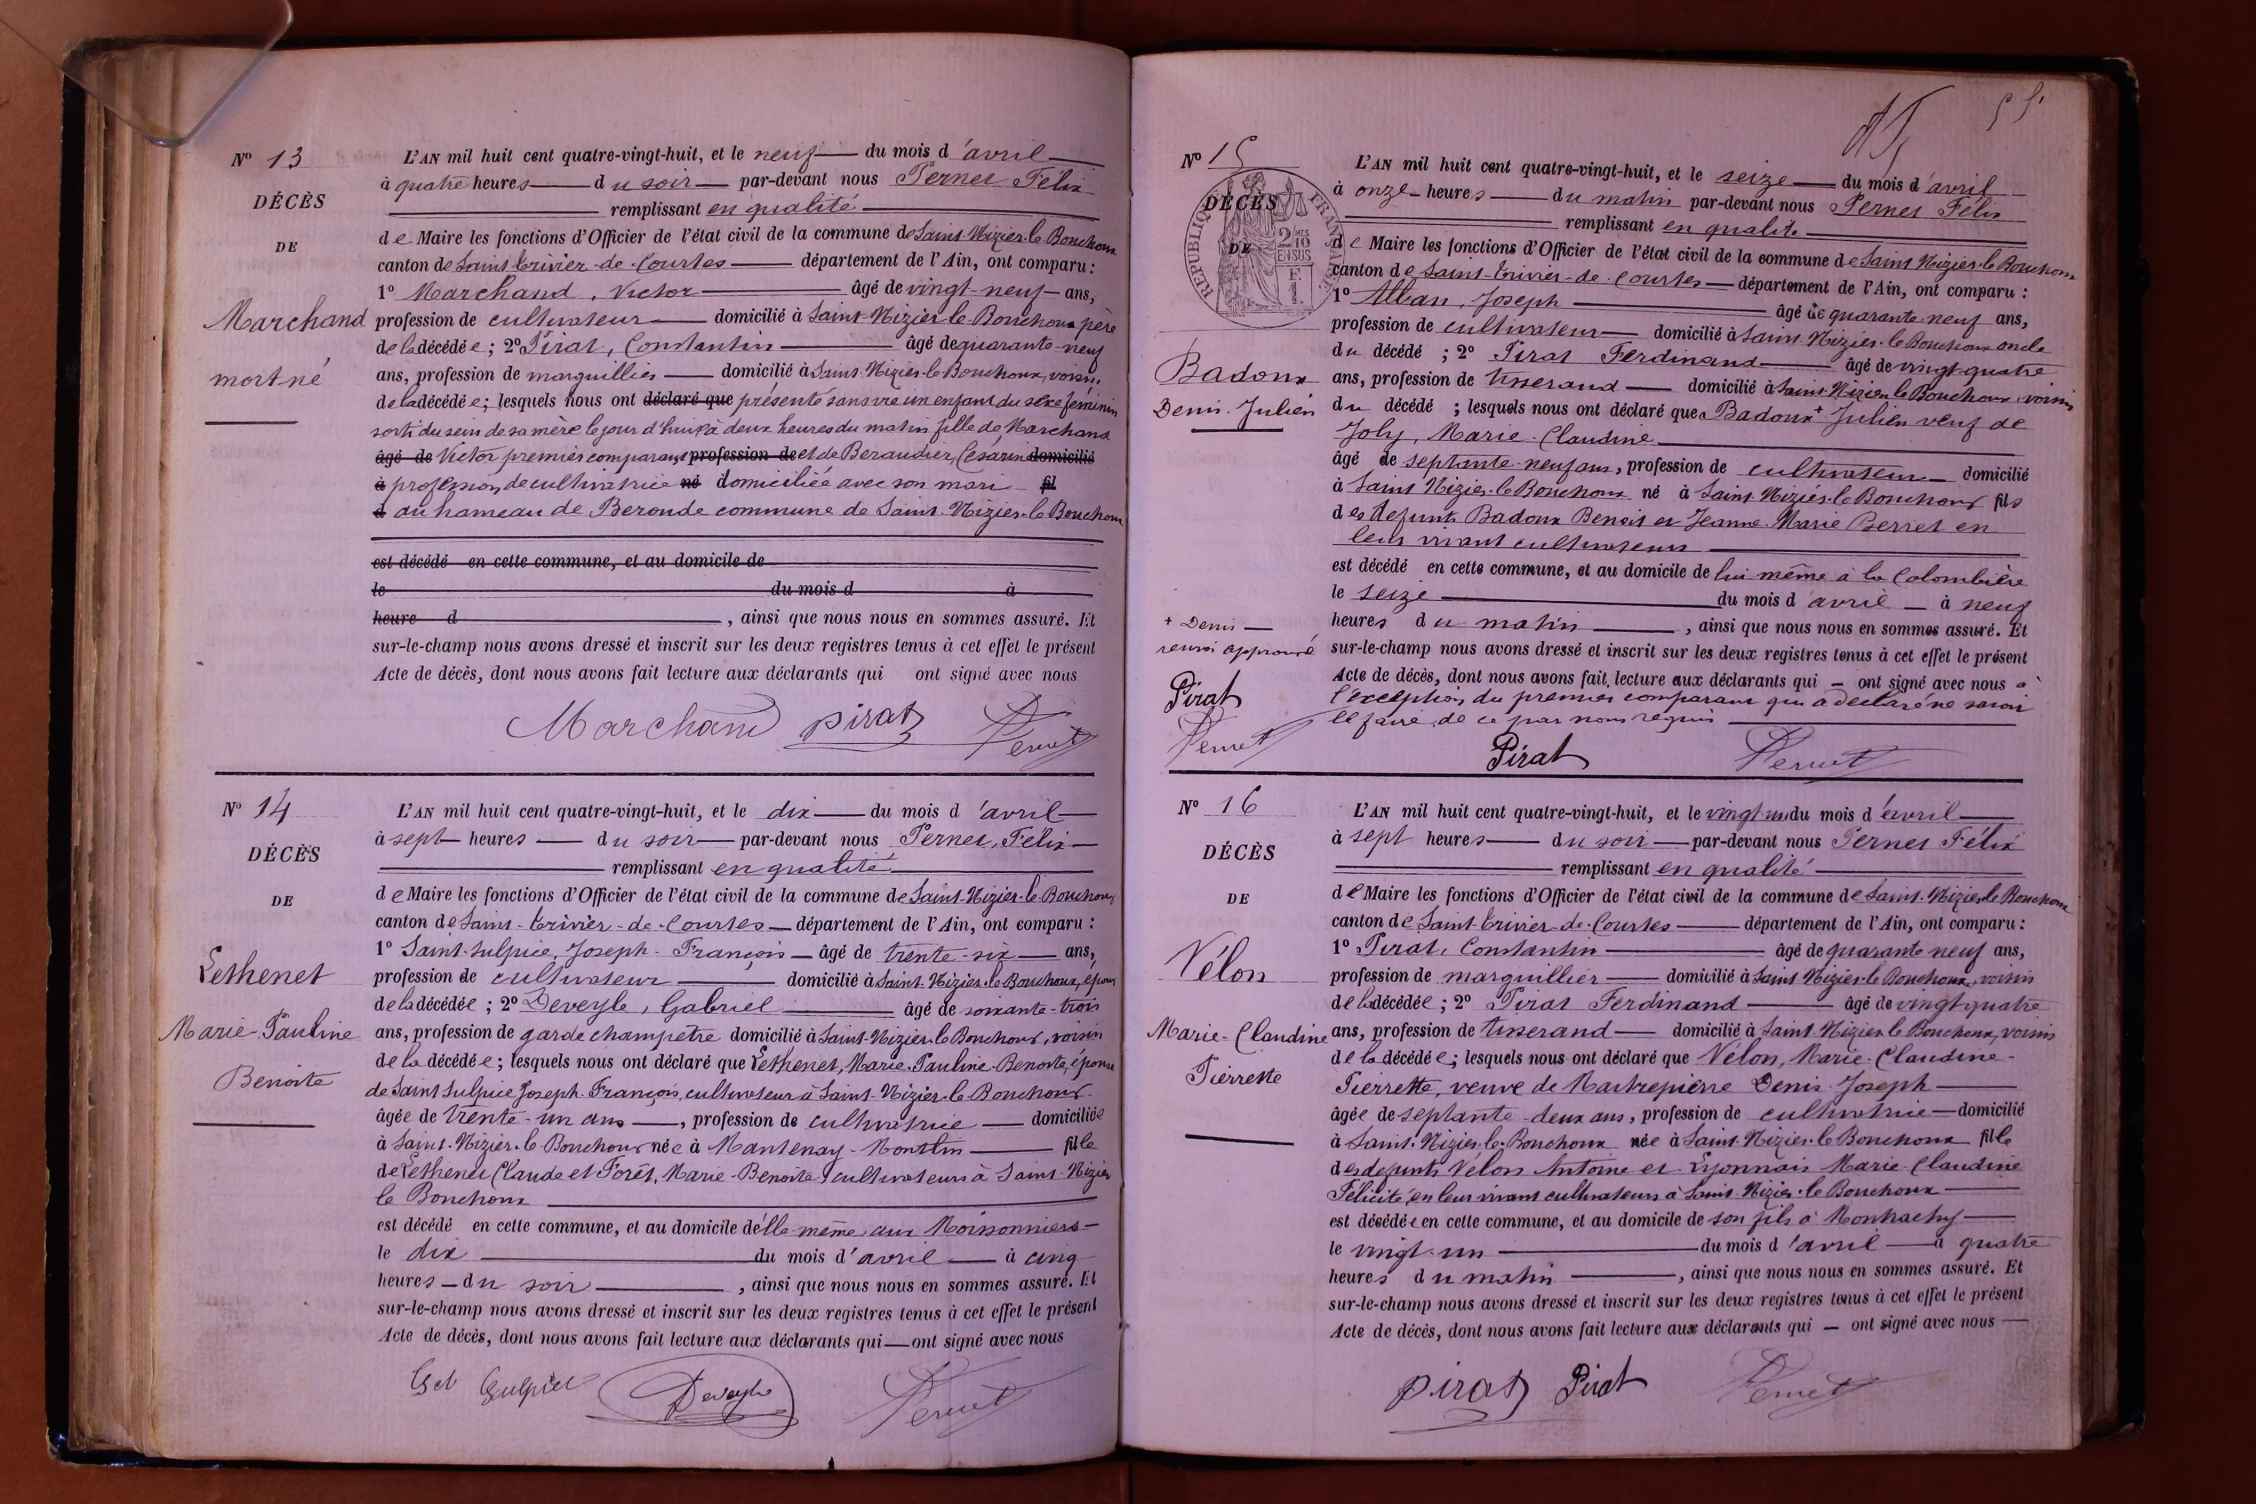 Nº 13
DÉCÈS
DE
Marchand
mort né
L'AN mil huit cent quatre-vingt-huit, et le neuf du mois d'avril
à quatre heures du soir par-devant nous Pernet Félix
remplissant en qualité
de Maire les fonctions d'Officier de l'état civil de la commune de Saint-Nizier-le-Bouchoux
canton de Saint-Trivier-de-Courtes département de l'Ain, ont comparu :
1º Marchand, Victor âgé de vingt-neuf ans,
profession de cultivateur domicilié à Saint-Nizier-le-Bouchoux père
de la décédée ; 2º Pirat, Constantin âgé de quarante-neuf
ans, profession de marguillier domicilié à Saint-Nizier-le-Bouchoux, voisin
de la décédée ; lesquels nous ont déclaré que présenté sans vie un enfant du sexe féminin
sorti du sein de sa mère le jour d'hui à deux heures du matin fille de Marchand
âgé de Victor premier comparant profession de et de Beraudier, Césarine domicilié
à profession de cultivatrice né domiciliée avec son mari fil
d au hameau de Beronde commune de Saint-Nizier-le-Bouchoux
est décédé en cette commune, et au domicile de
le du mois d à
heure d , ainsi que nous nous en sommes assuré. Et
sur-le-champ nous avons dressé et inscrit sur les deux registres tenus à cet effet le présent
Acte de décès, dont nous avons fait lecture aux déclarants qui ont signé avec nous
Marchand Pirat Pernet
Nº 14
DÉCÈS
DE
Lethenet
Marie-Pauline
Benoite
L'AN mil huit cent quatre-vingt-huit, et le dix du mois d'avril
à sept heures du soir par-devant nous Pernet, Félix
remplissant en qualité
de Maire les fonctions d'Officier de l'état civil de la commune de Saint-Nizier-le-Bouchoux
canton de Saint-Trivier-de-Courtes département de l'Ain, ont comparu :
1º Saint-Sulpice, Joseph-François âgé de trente-six ans,
profession de cultivateur domicilié à Saint-Nizier-le-Bouchoux, époux
de la décédée ; 2º Deveyle, Gabriel âgé de soixante-trois
ans, profession de garde champêtre domicilié à Saint-Nizier-le-Bouchoux, voisin
de la décédée ; lesquels nous ont déclaré que Lethenet, Marie-Pauline-Benoite, épouse
de Saint Sulpice Joseph-François, cultivateur à Saint-Nizier-le-Bouchoux
âgée de trente-un ans, profession de cultivatrice domiciliée
à Saint-Nizier-le-Bouchoux née à Mantenay-Montlin fille
de Lethenet Claude et Forêt, Marie-Benoite, cultivateurs à Saint-Nizier
le Bouchoux
est décédé en cette commune, et au domicile d'elle même aux Moissonniers
le dix du mois d'avril à cinq
heures du soir , ainsi que nous nous en sommes assuré. Et
sur-le-champ nous avons dressé et inscrit sur les deux registres tenus à cet effet le présent
Acte de décès, dont nous avons fait lecture aux déclarants qui ont signé avec nous
St Sulpice Deveyle Pernet
55
Nº 15
DÉCÈS
DE
RÉPUBLIQUE FRANÇAISE
2/10 EN SUS
Badoux
Denis-Julien
L'AN mil huit cent quatre-vingt-huit, et le seize du mois d'avril
à onze heures du matin par-devant nous Pernet Félix
remplissant en qualité
de Maire les fonctions d'Officier de l'état civil de la commune de Saint Nizier-le-Bouchoux
canton de Saint-Trivier-de-Courtes département de l'Ain, ont comparu :
1º Alban, Joseph âgé de quarante-neuf ans,
profession de cultivateur domicilié à Saint-Nizier-le-Bouchoux oncle
du décédé ; 2º Pirat Ferdinand âgé de vingt-quatre
ans, profession de tisserand domicilié à Saint-Nizier-le-Bouchoux, voisin
du décédé ; lesquels nous ont déclaré que Badoux + Julien veuf de
Joly, Marie-Claudine
âgé de septante-neuf ans, profession de cultivateur domicilié
à Saint Nizier-le-Bouchoux né à Saint-Nizier-le-Bouchoux fils
des défunts Badoux Benoit et Jeanne-Marie Perret en
leur vivant cultivateurs
est décédé en cette commune, et au domicile de lui même à la Colombière
le seize du mois d'avril à neuf
heures du matin , ainsi que nous nous en sommes assuré. Et
sur-le-champ nous avons dressé et inscrit sur les deux registres tenus à cet effet le présent
Acte de décès, dont nous avons fait lecture aux déclarants qui ont signé avec nous à
l'exception du premier comparant qui a déclaré ne savoir
le faire de ce par nous requis
+ Denis
renvoi approuvé
Pirat
Pernet
Pirat Pernet
Nº 16
DÉCÈS
DE
Vélon
Marie-Claudine
Pierrette
L'AN mil huit cent quatre-vingt-huit, et le vingt un du mois d'avril
à sept heures du soir par-devant nous Pernet Félix
remplissant en qualité
de Maire les fonctions d'Officier de l'état civil de la commune de Saint-Nizier-le-Bouchoux
canton de Saint-Trivier-de-Courtes département de l'Ain, ont comparu :
1º Pirat, Constantin âgé de quarante neuf ans,
profession de marguillier domicilié à Saint Nizier-le-Bouchoux, voisin
de la décédée ; 2º Pirat Ferdinand âgé de vingt-quatre
ans, profession de tisserand domicilié à Saint-Nizier-le-Bouchoux, voisin
de la décédée ; lesquels nous ont déclaré que Vélon, Marie-Claudine-
Pierrette, veuve de Maitrepierre Denis-Joseph
âgée de septante-deux ans, profession de cultivatrice domicilié
à Saint-Nizier-le-Bouchoux née à Saint-Nizier-le-Bouchoux fille
des défunts Vélon Antoine et Lyonnais Marie-Claudine
Félicité, en leur vivant cultivateurs à Saint-Nizier-le-Bouchoux
est décédée en cette commune, et au domicile de son fils à Montrachy
le vingt-un du mois d'avril à quatre
heures du matin , ainsi que nous nous en sommes assuré. Et
sur-le-champ nous avons dressé et inscrit sur les deux registres tenus à cet effet le présent
Acte de décès, dont nous avons fait lecture aux déclarants qui ont signé avec nous
Pirat Pirat Pernet